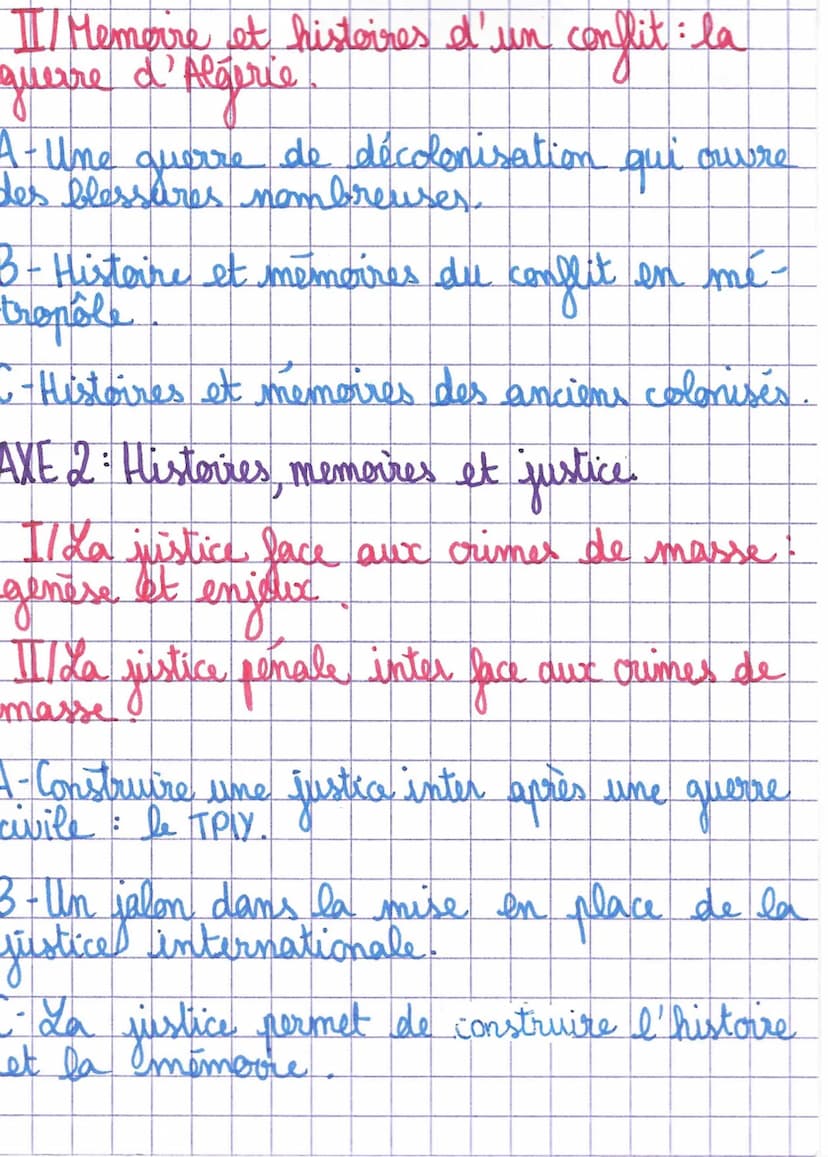 II/ Memoire et histoires d'un conflit : la
guerre d'Algérie.
A - Une guerre de décolonisation qui ouvre
des blessures nombreuses.
B - Histoire et mémoires du conflit en mé-
tropôle.
C - Histoires et mémoires des anciens colonisés.
AXE 2 : Histoires, memoires et justice.
I/ La justice face aux crimes de masse :
genèse et enjeux.
II/ La justice pénale inter face aux crimes de
masse.
A - Construire une justice inter après une guerre
civile : le TPIY.
B - Un jalon dans la mise en place de la
justice internationale.
C - La justice permet de construire l'histoire
et la mémoire.